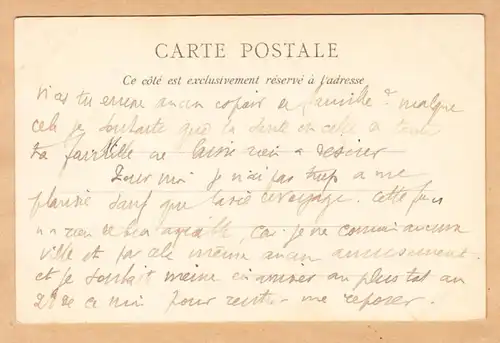 CARTE POSTALE
Ce côté est exclusivement réservé à l'adresse
tu encore aucun copain de famille ? malgré
cela je souhaite que ta santé et celle de toute
ta famille ne laisse rien à désirer
Pour moi je n'ai pas trop à me
plaindre sauf que la vie de voyage. Cette fois
n'a rien de bien agréable, car je ne connais aucune
ville et par cela même aucun amusement
et je souhait même d'arriver au plus tôt au
28 de ce mois pour rentrer me reposer.